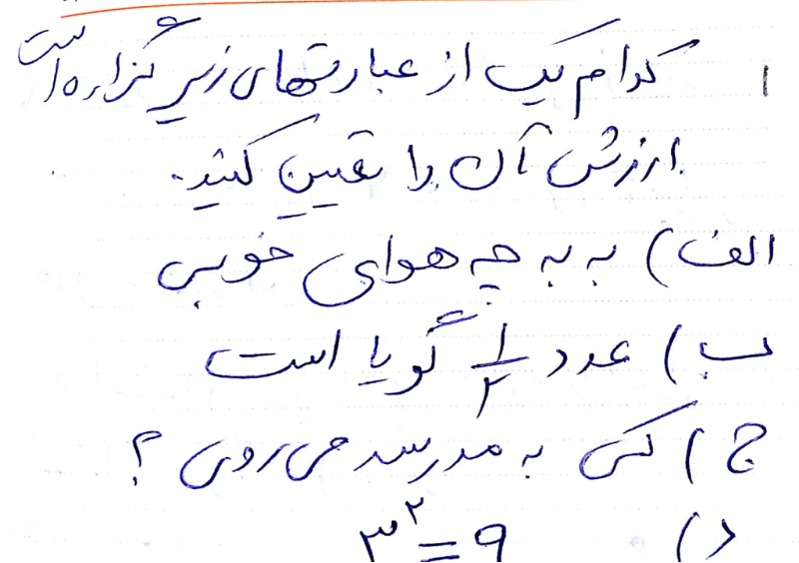 ۱ کدام یک از عبارتهای زیر گزاره است
ارزش آن را تعیین کنید.
الف) به به چه هوای خوبی
ب) عدد ۱/۲ گویا است
ج) کی به مدرسه می روی ؟
د) ۳^۲ = ۹